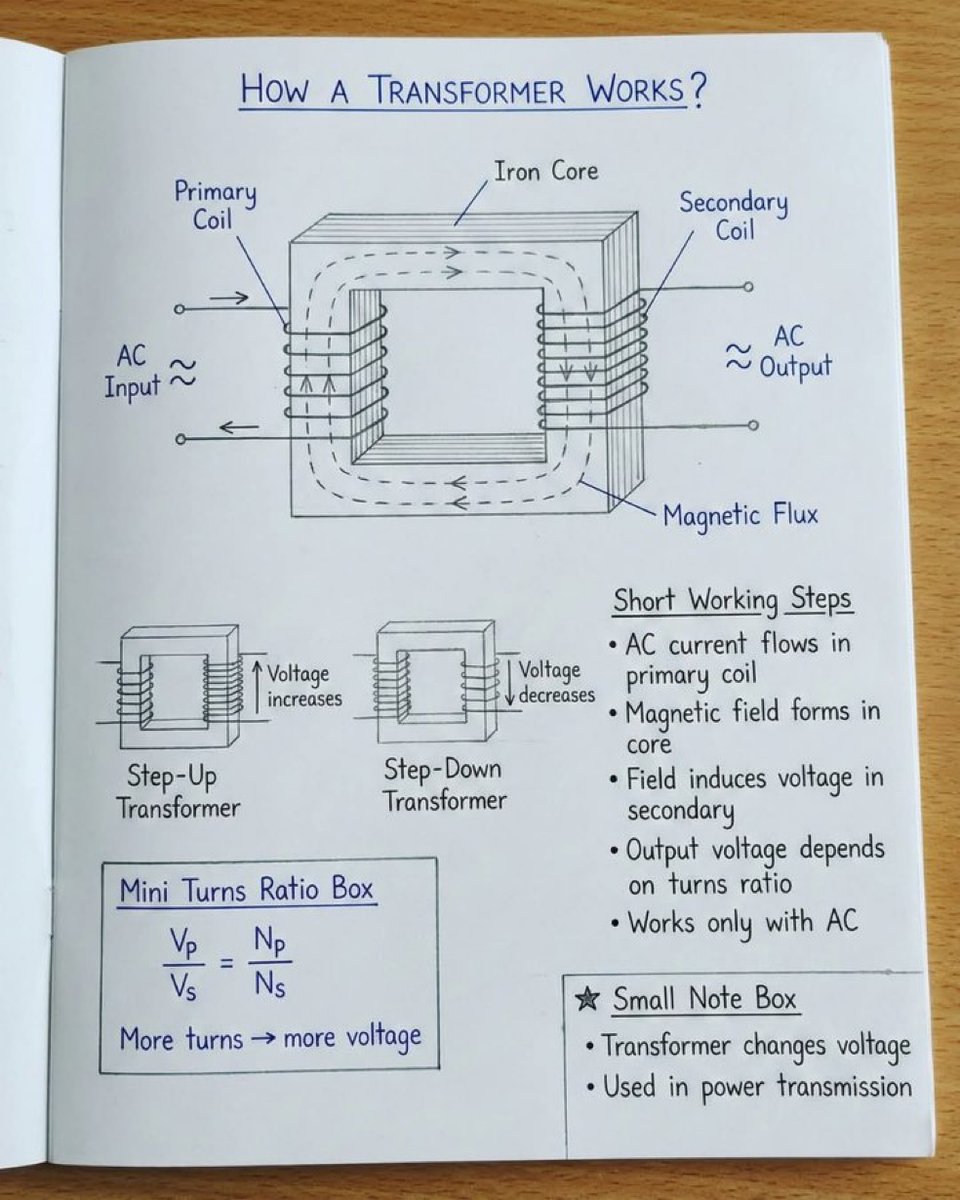 How a Transformer Works?
Iron Core
Primary
Coil
Secondary
Coil
AC
Input
AC
Output
Magnetic Flux
Voltage
increases
Step-Up
Transformer
Voltage
decreases
Step-Down
Transformer
Short Working Steps
• AC current flows in
primary coil
• Magnetic field forms in
core
• Field induces voltage in
secondary
• Output voltage depends
on turns ratio
• Works only with AC
Mini Turns Ratio Box
Vp/Vs = Np/Ns
More turns → more voltage
★ Small Note Box
• Transformer changes voltage
• Used in power transmission